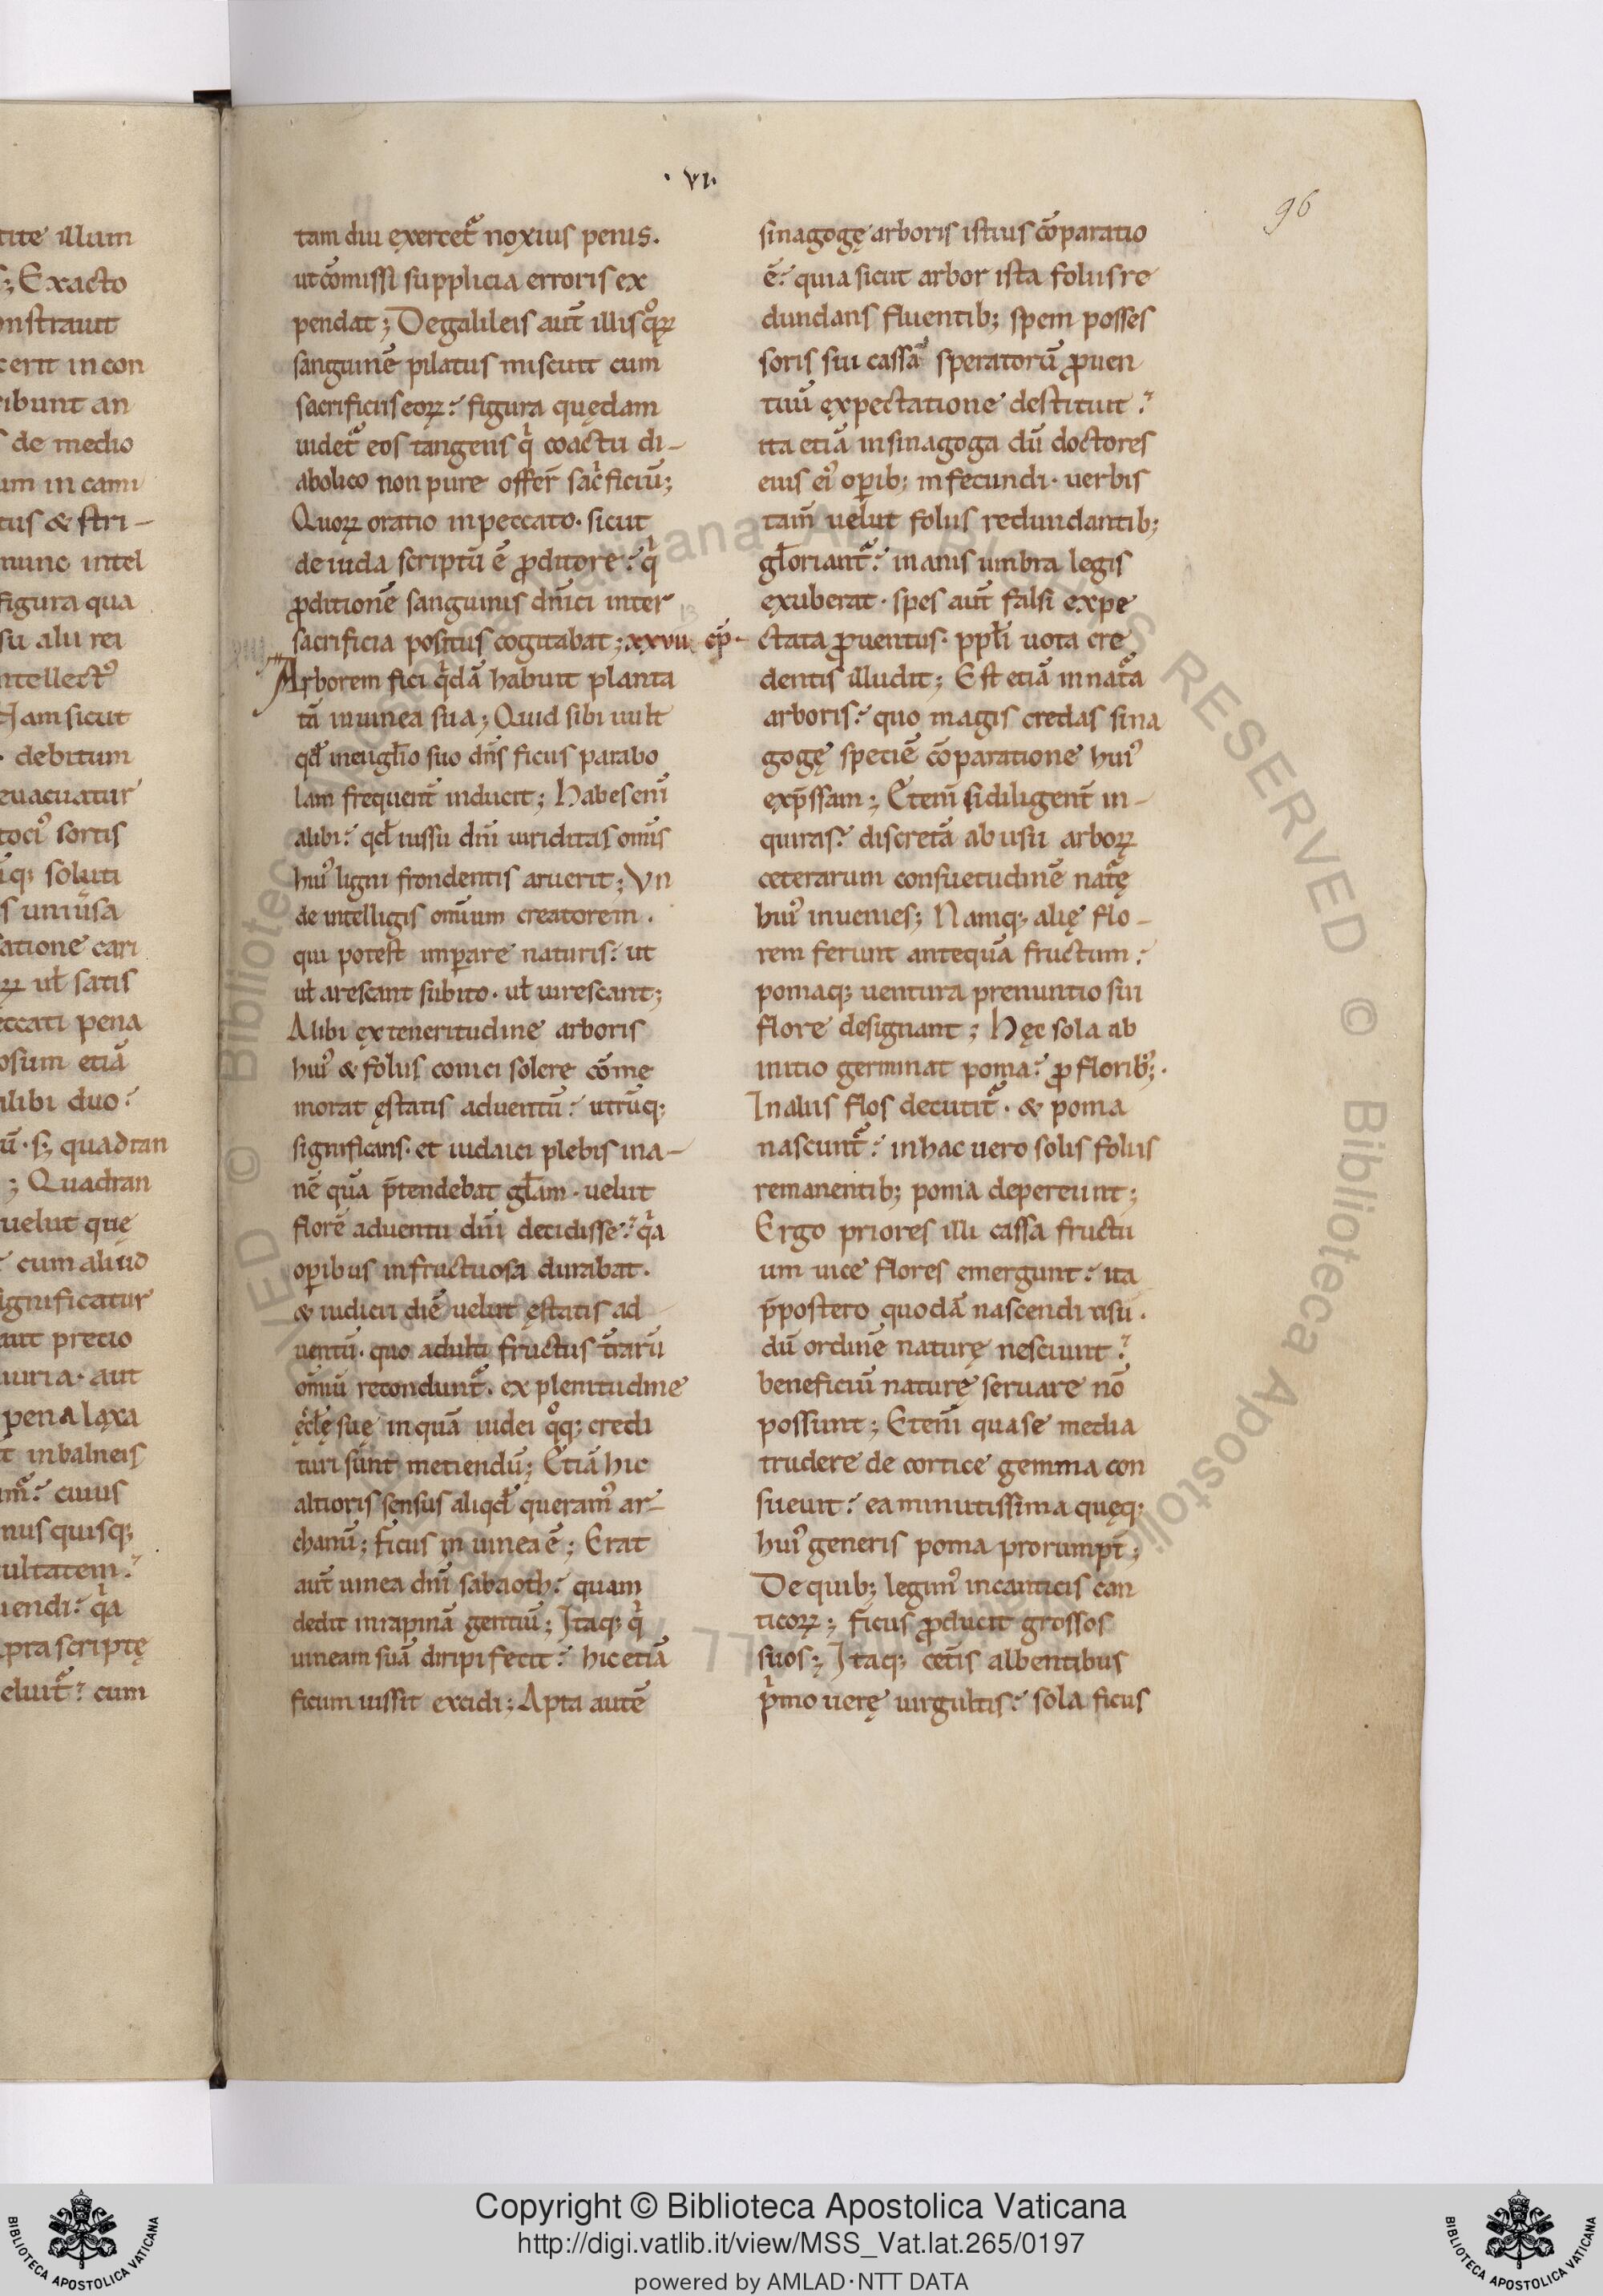 · VI ·
96
tite illum
; Exacto
onstrauit
cerit in con
ribunt an
s de medio
um in cami
tus & stri-
nunc intel
figura qua
su alii rei
ntellectꝰ
Nam sicut
· debitum
euacuatur
tociꝰ sortis
iq; soluti
s uniũsa
satione cari
ꝝ ul̃ satis
eccati pena
osum etiã
alibi duo?
ũ· s; quadran
; Quadran
uelut que
cum aliud
ignificatur
aut precio
iuria· aut
pena laxa
t in balneis
cuius
nus quisq;
ultatem?
uendi? q̃a
pra scriptę
eluit᷑? cum
tam diu exercet᷑ noxius penis.
ut cõmissi supplicia erroris ex
pendat; De galileis aut̃ illis qͦꝝ
sanguinẽ pilatus miscuit cum
sacrificiis eoꝝ? figura quędam
uidet᷑ eos tangens qͥ coactu di-
abolico non pure offer̃ sac̃ficiũ;
Quoꝝ oratio in peccato· sicut
de iuda scriptũ ẽ ꝓditore? qͥ
ꝓditionẽ sanguinis dñici inter
sacrificia positus cogitabat; xxvii cp̃·
Arborem fici qͥdã habuit planta
tã in uinea sua; Quid sibi uult
qđ in euglĩo suo dñs ficus parabo
lam frequent̃ inducit; Habes eni̅
alibi? qđ iussu dñi uiriditas omĩs
huiꝰ ligni frondentis aruerit; Vn
de intelligis omĩum creatorem.
qui potest imꝑare naturis? ut
ul̃ arescant subito· ul̃ uirescant;
Alibi ex teneritudine arboris
huiꝰ & foliis conici solere cõme
morat ęstatis aduentũ? utrũq;
significans· et iudaici plebis ina-
nẽ quã p̃tendebat gl̃am· uelut
florẽ aduentu dñi decidisse? q̃a
oꝑibus infructuosa durabat.
& iudicii diẽ uelut ęstatis ad
uentũ· quo adulti fructus t̃rarũ
oĩniũ recondunt᷑· ex plenitudine
ęcl̃ę suę in quã iudei qͦq; credi
turi sunt metiendũ; Etiã hic
altioris sensus aliqđ queramꝰ ar-
chanũ; ficus in uinea ẽ; Erat
aut̃ uinea dñi sabaoth? quam
dedit in rapinã gentiũ; Itaq; qͥ
uineam suã diripi fecit? hic etiã
ficum iussit excidi; Apta autẽ
sinagogę arboris istius cõparatio
ẽ? quia sicut arbor ista foliis re
dundans fluentib; spem posses
soris sui cassa speratorũ ꝓuen
tuũ expectatione destituit?
ita etiã in sinagoga dũ doctores
eius oꝑib; infecundi· uerbis
tam̃ uelut foliis redundantib;
gl̃oriant᷑? inanis umbra legis
exuberat· spes aut̃ falsi expe
ctata ꝓuentus· ppl̃i uota cre
dentis illudit; Est etiã in nat᷑a
arboris? quo magis credas sina
gogę speciẽ cõparatione huiꝰ
exp̃ssam; Eteni̅ si diligent̃ in-
quiras? discretã ab usu arboꝝ
ceterarum consuetudinẽ nat᷑ę
huiꝰ inuenies; Namq; alię flo-
rem ferunt antequã fructum?
pomaq; uentura prenuntio sui
flore designant; Hęc sola ab
initio germinat poma? ꝓ florib;·
In aliis flos decutit᷑· & poma
nascunt᷑? in hac uero solis foliis
remanentib; poma depereunt;
Ergo priores illi cassa fructu
um uice flores emergunt? ita
p̃postero quodã nascendi usu.
dũ ordinẽ naturę nesciunt?
beneficiũ naturę seruare nõ
possunt; Eteni̅ qua se media
trudere de cortice gemma con
sueuit? ea minutissima quęq;
huiꝰ generis poma prorumpt̃;
De quib; legimꝰ in canticis can
ticoꝝ; ficus ꝓducit grossos
suos; Itaq; cet̃is albentibus
pͥmo uerę uirgultis? sola ficus
Copyright © Biblioteca Apostolica Vaticana
http://digi.vatlib.it/view/MSS_Vat.lat.265/0197
powered by AMLAD·NTT DATA
BIBLIOTECA APOSTOLICA VATICANA
BIBLIOTECA APOSTOLICA VATICANA